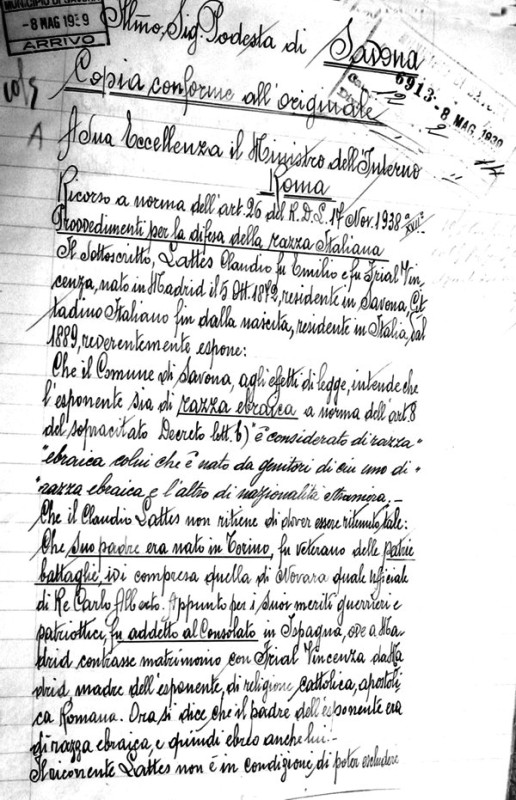 MUNICIPIO DI SAVONA
- 8 MAG 1939
ARRIVO
Illmo, Sig Podestà di
Savona
6913 - 8 MAG. 1939
Copia conforme all'originale
A Sua Eccellenza il Ministro dell'Interno
Roma
Ricorso a norma dell'art. 26 del R.D.L. 17 Nov. 1938 XVII°
Provvedimenti per la difesa della razza Italiana
Il Sottoscritto, Lattes Claudio fu Emilio e fu Trial Vin,
cenza, nato in Madrid il 5 Ott. 1872, residente in Savona Cit
tadino Italiano fin dalla nascita, residente in Italia, dal
1889, reverentemente espone:
Che il Comune di Savona, agli effetti di legge, intende che
l'esponente sia di razza ebraica a norma dell'art. 8
del sopracitato Decreto lett. b) "è considerato di razza"
"ebraica colui che è nato da genitori di cui uno di"
"razza ebraica e l'altro di nazionalità straniera.-
Che il Claudio Lattes non ritiene di dover essere ritenuto tale:
Che suo padre era nato in Torino, fu veterano delle patrie
battaglie, ivi compresa quella di Novara quale ufficiale
di Re Carlo Alberto. Appunto per i suoi meriti guerrieri e
patriottici, fu addetto al Consolato in Ispagna, ove a Ma,
drid contrasse matrimonio con Trial Vincenza da Ma
drid madre dell'esponente, di religione cattolica, apostoli
ca Romana. Ora si dice, che il padre dell'esponente era
di razza ebraica, e quindi ebreo anche lui.-
Il ricorrente Lattes non è in condizione, di poter escludere